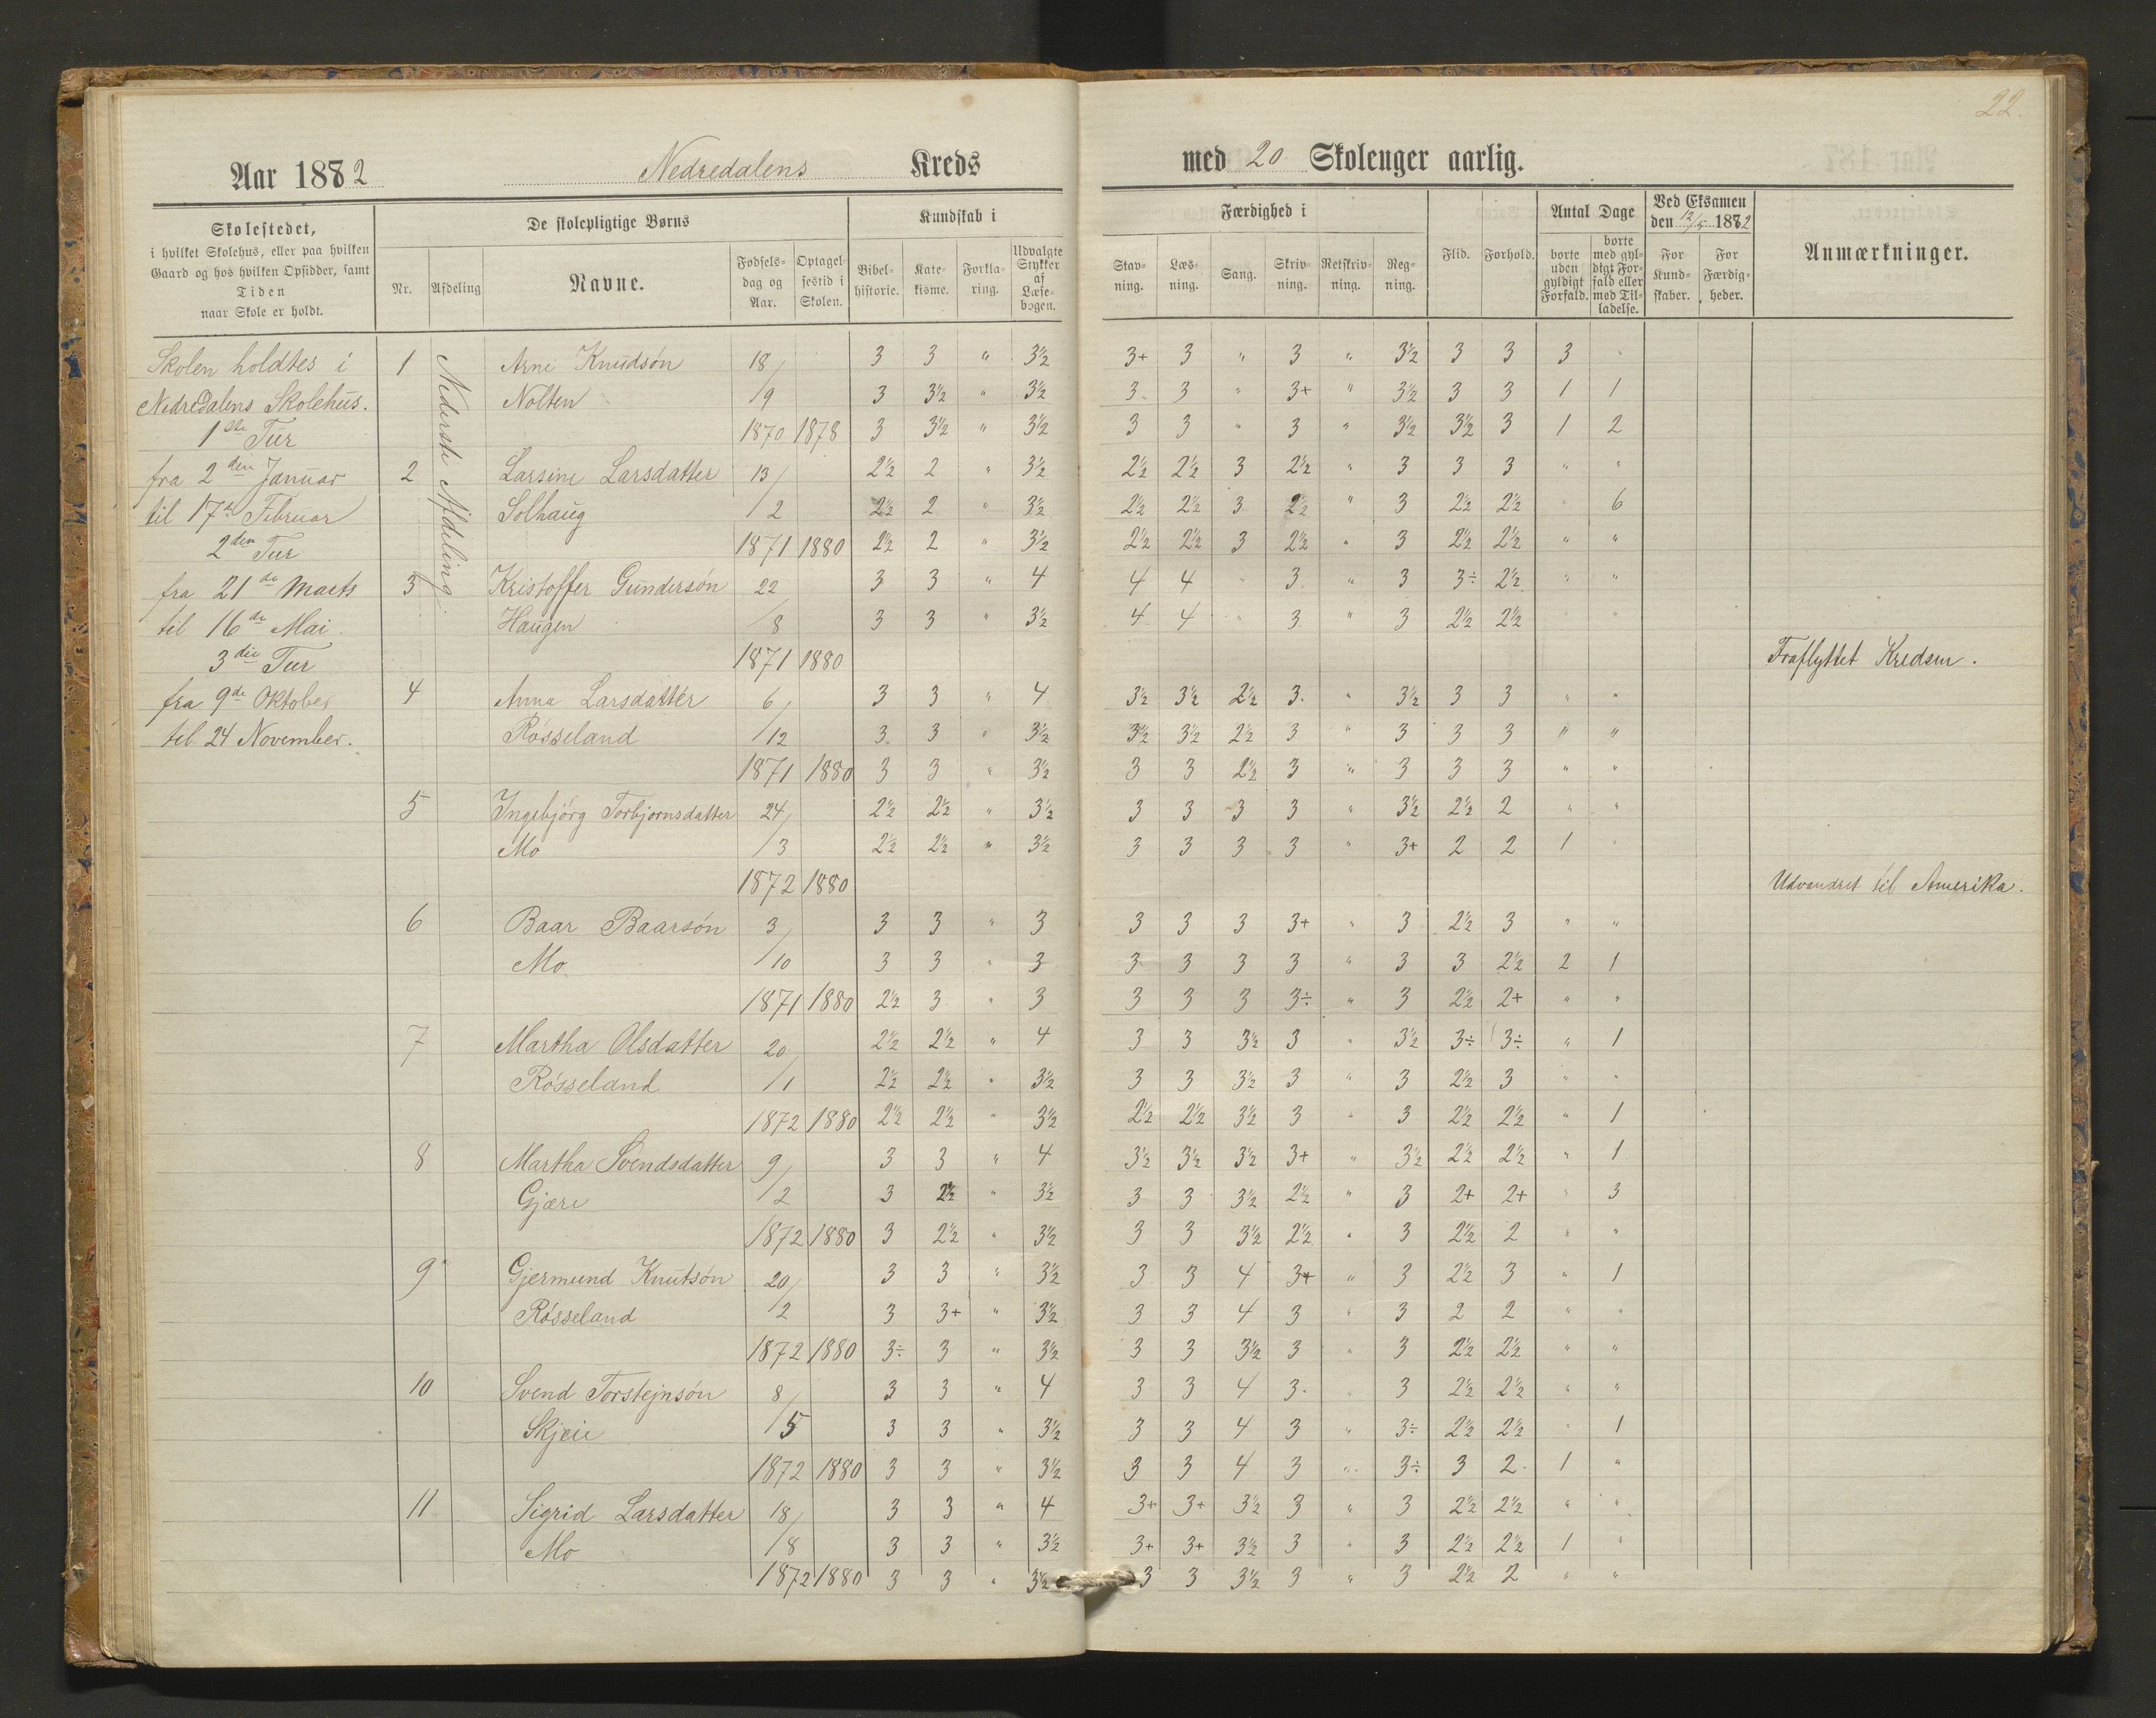 22.
Aar 1882 Nedredalens Kreds med 20 Skoleuger aarlig.
Skolestedet,
i hvilket Skolehus, eller paa hvilken
Gaard og hos hvilken Opsidder, samt
Tiden
naar Skole er holdt.
De skolepligtige Børns
Nr. Afdeling Navne. Fødsels-dag og Aar. Optagel-sestid i Skolen.
Kundskab i
Bibel-historie. Kate-kisme. Forkla-ring. Udvalgte Stykker af Læse-bogen.
Færdighed i
Stav-ning. Læs-ning. Sang. Skriv-ning. Retskriv-ning. Reg-ning.
Flid. Forhold.
Antal Dage
borte uden gyldigt Forfald. borte med gyl-digt For-fald eller med Til-ladelse.
Ved Eksamen
den 12/5 1882
For Kund-skaber. For Færdig-heder.
Anmærkninger.
Skolen holdtes i
Nedredalens Skolehus.
1ste Tur
fra 2den Januar
til 17de Februar
2den Tur
fra 21de Marts
til 16de Mai.
3die Tur
fra 9de Oktober
til 24 November.
Nederste Afdeling.
1 Arne Knudsön 18/ 3 3 " 3½ 3+ 3 " 3 " 3½ 3 3 3 "
Nolten /9 3 3½ " 3½ 3 3 " 3+ " 3½ 3 3 1 1
1870 1878 3 3½ " 3½ 3 3 " 3 " 3½ 3½ 3 1 2
2 Larsine Larsdatter 13/ 2½ 2 " 3½ 2½ 2½ 3 2½ " 3 3 3 " "
Solhaug /2 2½ 2 " 3½ 2½ 2½ 3 2½ " 3 2½ 2½ " 6
1871 1880 2½ 2 " 3½ 2½ 2½ 3 2½ " 3 2½ 2½ " "
3 Kristoffer Gundersön 22/ 3 3 " 4 4 4 " 3 " 3 3÷ 2½ " "
Haugen /8 3 3 " 3½ 4 4 " 3 " 3 2½ 2½ " "
1871 1880 Fraflyttet Kredsen.
4 Anna Larsdatter 6/ 3 3 " 4 3½ 3½ 2½ 3 " 3½ 3 3 " "
Rösseland /12 3 3 " 3½ 3½ 3½ 2½ 3 " 3 3 3 " "
1871 1880 3 3 " 3½ 3 3 2½ 3 " 3 3 3 " "
5 Ingebjörg Torbjornsdatter 24/ 2½ 2½ " 3½ 3 3 3 3 " 3½ 2½ 2 " "
Mo /3 2½ 2½ " 3½ 3 3 3 3 " 3+ 2 2 1 "
1872 1880 Udvandret til Amerika.
6 Baar Baarsön 3/ 3 3 " 3 3 3 3 3+ " 3 2½ 3 " "
Mo /10 3 3 " 3 3 3 3 3 " 3 3 2½ 2 1
1871 1880 2½ 3 " 3 3 3 3 3÷ " 3 2½ 2+ " "
7 Martha Olsdatter 20/ 2½ 2½ " 4 3 3 3½ 3 " 3½ 3÷ 3÷ " 1
Rösseland /1 2½ 2½ " 3½ 3 3 3½ 3 " 3 2½ 3 " "
1872 1880 2½ 2½ " 3½ 2½ 2½ 3½ 3 " 3 2½ 2½ " 1
8 Martha Svendsdatter 9/ 3 3 " 4 3½ 3½ 3½ 3+ " 3½ 2½ 2½ " 1
Gjære /2 3 2½ " 3½ 3 3 3½ 2½ " 3 2+ 2+ " 3
1872 1880 3 2½ " 3½ 3 3 3½ 2½ " 3 2½ 2 " "
9 Gjermund Knutsön 20/ 3 3 " 3½ 3 3 4 3+ " 3 2½ 3 " 1
Rösseland /2 3 3+ " 3½ 3 3 4 3 " 3 2 2 " "
1872 1880 3÷ 3 " 3½ 3 3 3½ 3 " 3 2½ 2½ " "
10 Svend Torstejnsön 8/ 3 3 " 4 3 3 4 3 " 3 2½ 2½ " "
Skjeie /5 3 3 " 3½ 3 3 4 3 " 3÷ 2½ 2½ " 1
1872 1880 3 3 " 3½ 3 3 4 3 " 3÷ 3 2 1 "
11 Sigrid Larsdatter 18/ 3 3 " 4 3+ 3+ 3½ 3 " 3 2½ 2½ " "
Mo /8 3 3 " 3½ 3+ 3+ 3½ 3 " 3 2½ 2½ 1 "
1872 1880 3 3 " 3½ 3 3 3½ 3 " 3 2½ 2 " "